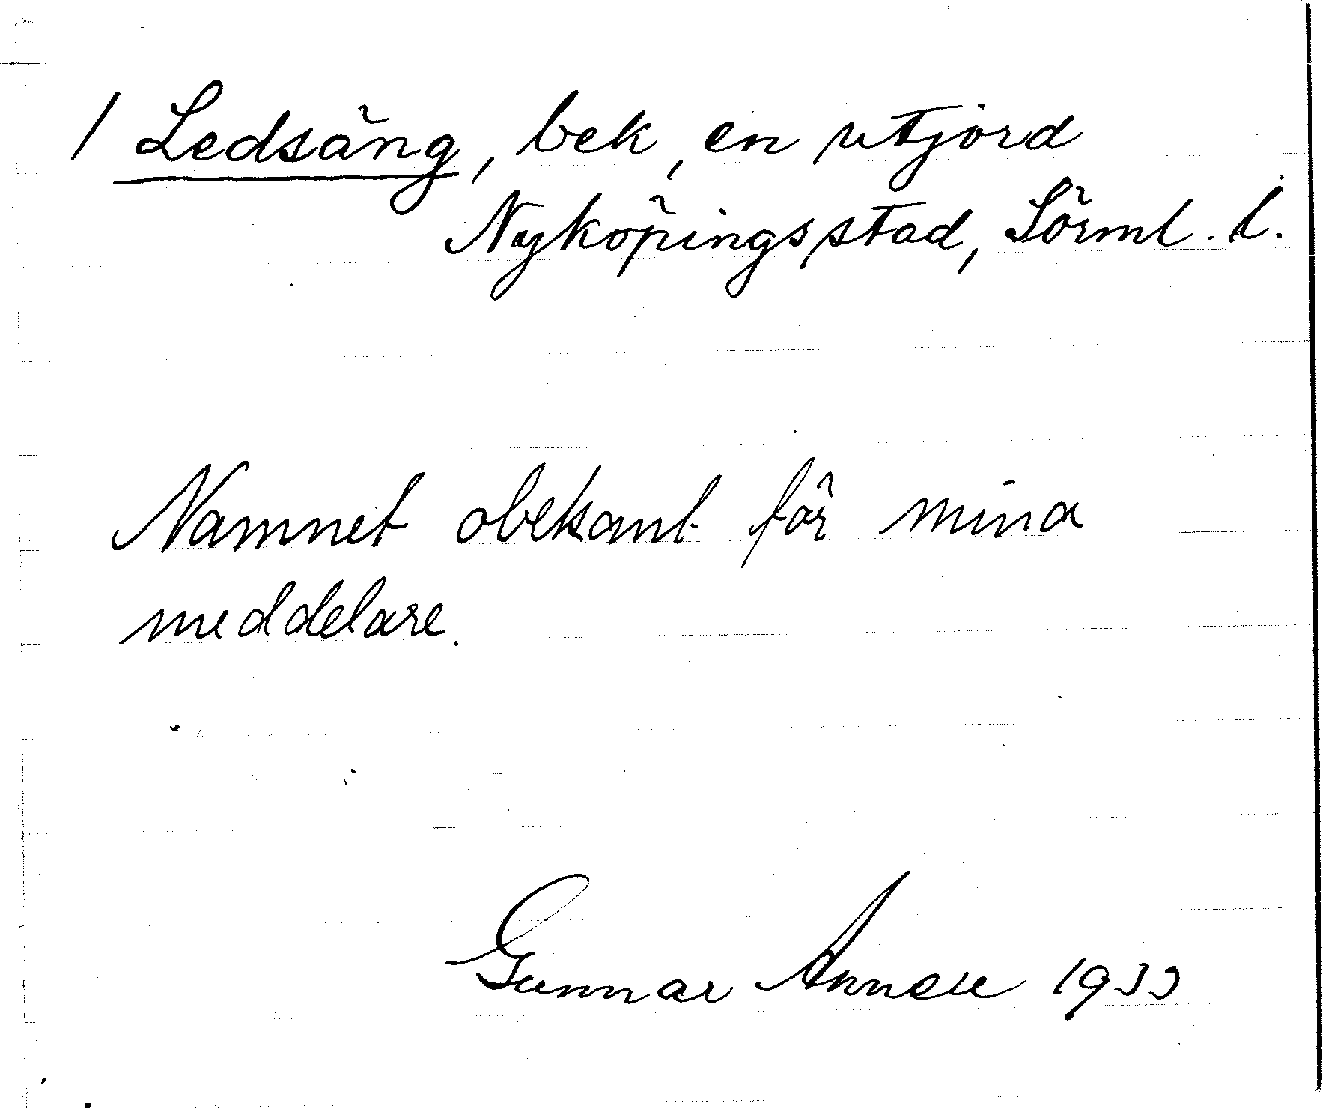 1 Ledsäng, bek, en utjord
Nyköpingsstad, Sörml. l.
Namnet obekant för mina
meddelare.
Gunnar 1933